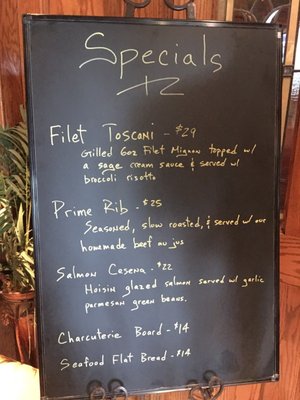 Specials
Filet Toscani - $29
Grilled 6oz Filet Mignon topped w/
a sage cream sauce & served w/
broccoli risotto
Prime Rib - $25
Seasoned, slow roasted, & served w/ our
homemade beef au jus
Salmon Cesena - $22
Hoisin glazed salmon served w/ garlic
parmesan green beans.
Charcuterie Board - $14
Seafood Flat Bread - $14